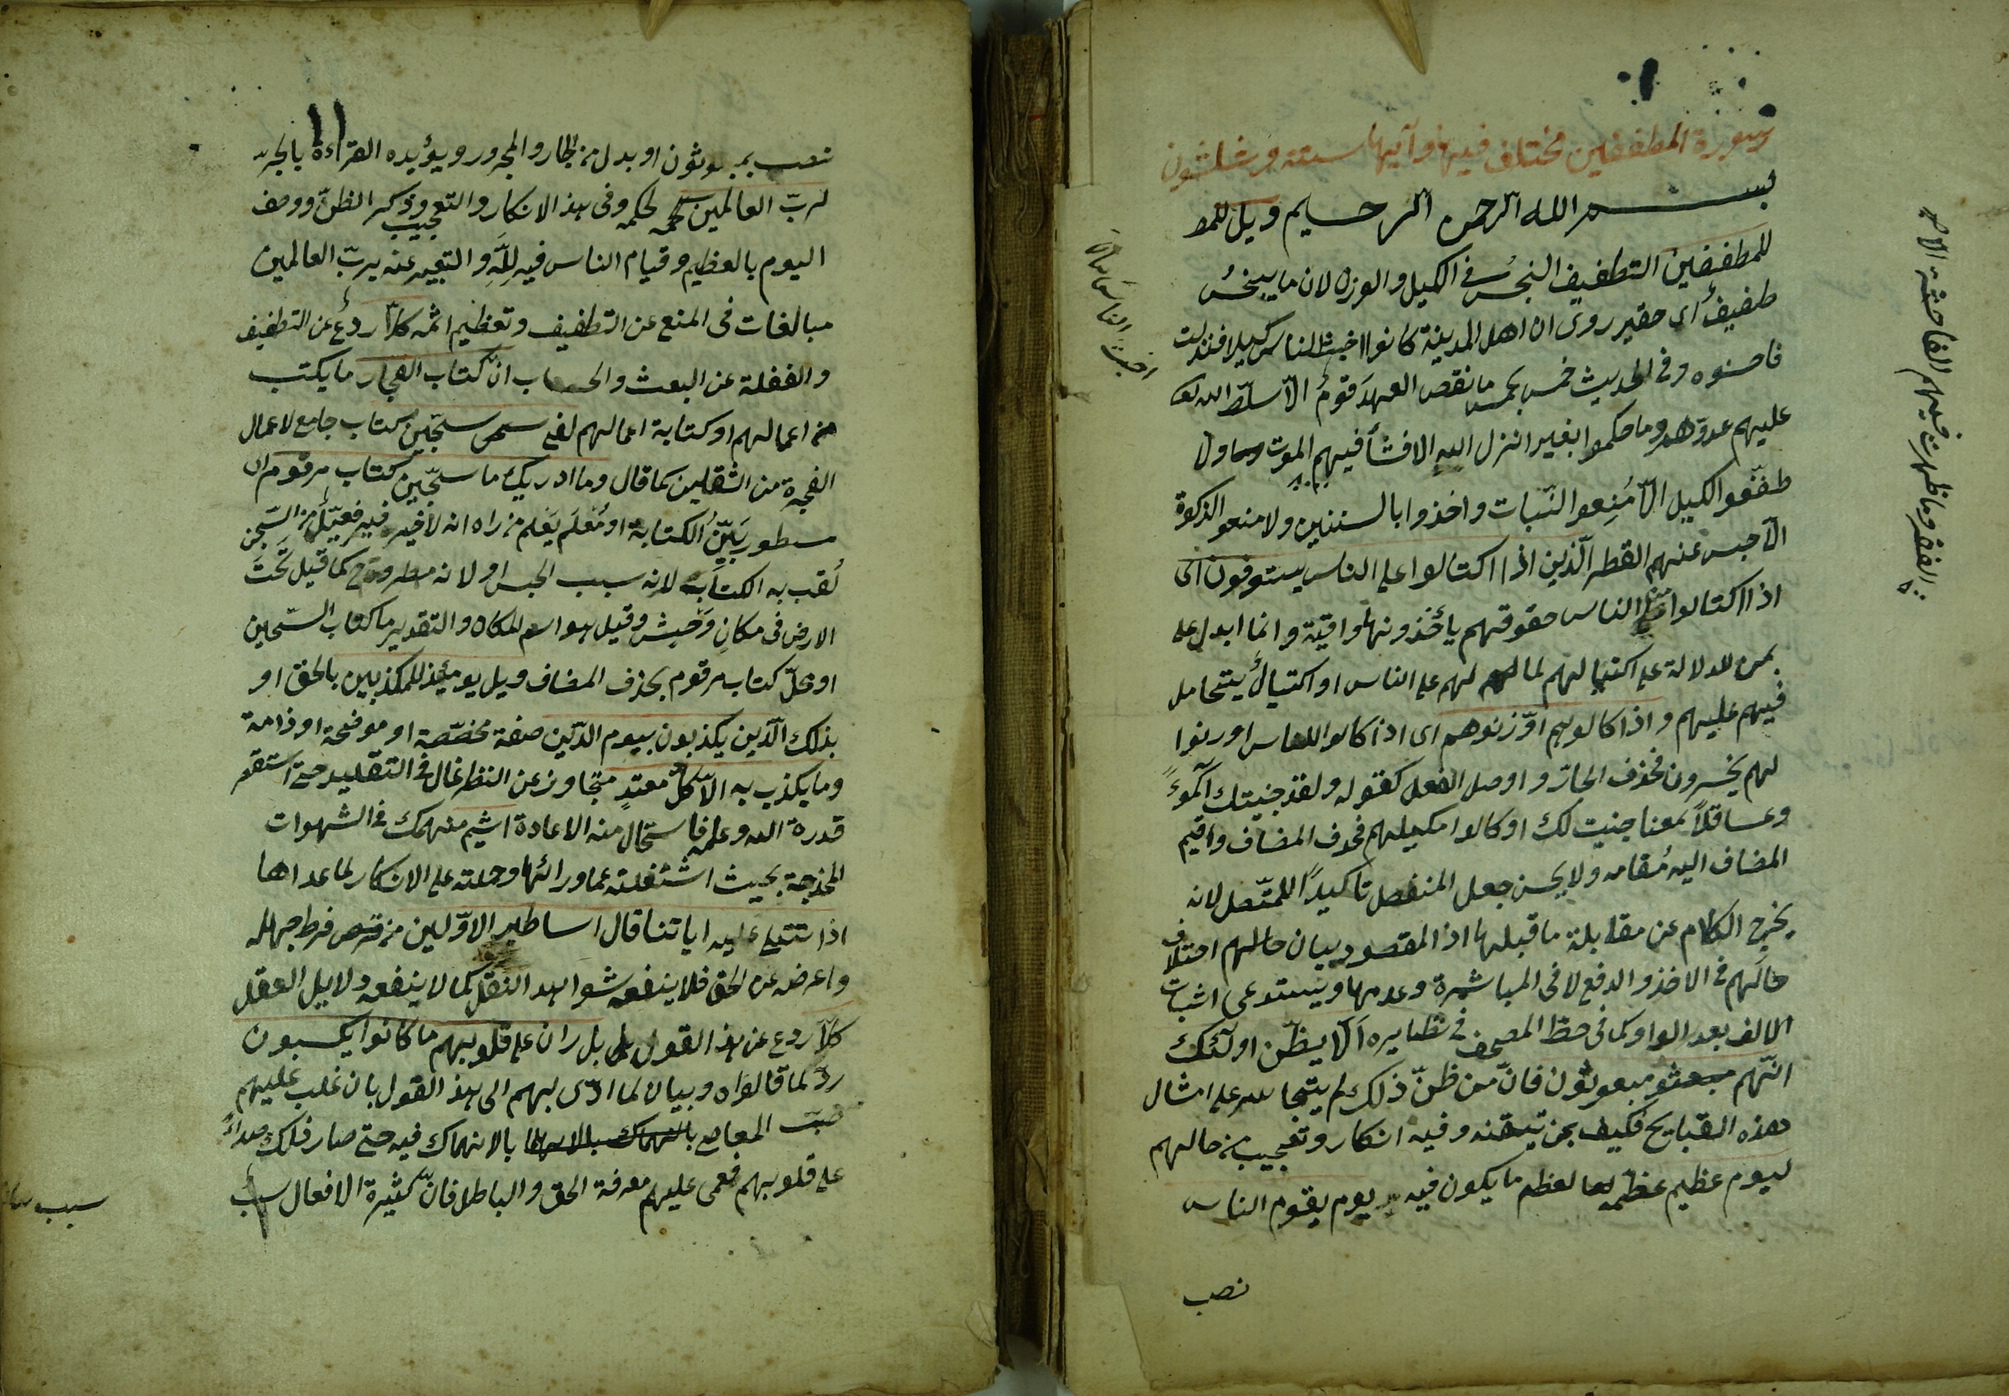 سورة المطففين مختلف فيها وآيها ستة وثلثون
بسم الله الرحمن الرحيم ويل للمط
للمطففين التطفيف البخس في الكيل والوزن لان ما يبخس
طفيف أي حقير روى ان اهل المدينة كانوا اخبث الناس كيلا فنزلت
فاحسنوه وفي الحديث خمس بخمس ما نقص العهد قوم الا سلط الله
عليهم عدوهم وما حكموا بغير انزل الله الا فشأ فيهم الموت ولا
طففوا الكيل الا مُنعوا النبات واخذوا بالسنين ولا منعوا الزكوة
الا حبس عنهم القطر الذين اذا اكتالوا على الناس يستوفون اى
اذا اكتالوا من الناس حقوقهم يأخذونها وافية وانما ابدل على
بمن للدلالة على اكتيالهم لما لهم على الناس او اكتيال يتحامل
فيهم عليهم واذا كالوهم او وزنوهم اى اذا كالوا للناس او وزنوا
لهم يخسرون فحذف الجار واوصل الفعل كقوله ولقد جنيتك اكموءً
وعساقلاً بمعنا جنيت لك او كالوا مكيلهم فحذف المضاف واقيم
المضاف اليه مُقامه ولا يحسن جعل المنفصل تاكيدًا للمتّصل لانه
يخرج الكلام عن مقابلة ما قبلها اذ المقصود بيان حالهم اختلاف
حالهم فى الاخذ والدفع لا فى المباشرة وعدمها ويستدعى اثبات
الالف بعد الواو كما فى خط المصحف فى نظايره الا يظن اولئك
انهم مبعوثون فان من ظنّ ذلك لم يتجاسر على امثال
هذه القبايح فكيف بمن تيقنه وفيه انكار وتعجيب من حالهم
ليوم عظيم عظمه لعظم ما يكون فيه يوم يقوم الناس
نصب
الفقر وما ظهرت فيهم الفاحشة الا
اخبث الناس
نصب بمبعوثون او بدل من الجار والمجرور ويؤيده القراءة بالجر
لرب العالمين لحكمه وفى هذا الانكار والتعجيب وذكر الظن ووصف
اليوم بالعظيم وقيام الناس فيه لله والتعبير عنه برب العالمين
مبالغات فى المنع عن التطفيف وتعظيم اثمه كلا ردع عن التطفيف
والغفلة عن البعث والحساب ان كتاب الفجار ما يكتب
من اعمالهم او كتابة اعمالهم لفى سجين كتاب جامع لاعمال
الفجرة من الثقلين كما قال وما ادريك ما سجين كتاب مرقوم اى
مسطور بيّن الكتابة او مُعلَم يعلم من راه انه لا خير فيه فعيل من السجن
لُقب به الكتاب لانه سبب الحبس او لانه مطروح كما قيل تحت
الارض فى مكان وحيش وقيل هو اسم للمكان والتقدير ما كتاب السجين
او محل كتاب مرقوم بحذف المضاف ويل يومئذ للمكذبين بالحق او
بذلك الذين يكذبون بيوم الدين صفة مخصّصة او موضحة او ذامة
وما يكذب به الا كل معتد متجاوز عن النظر غال فى التقليد حتى استقصر
قدرة الله وعلمه فاستحال منه الاعادة اثيم منهمك فى الشهوات
المخدجة بحيث اشتغلته عما ورائها وحملته على الانكار لما عداها
اذا تتلى عليه اياتنا قال اساطير الاولين من فرط جهله
واعرضه عن الحق فلا ينفعه شواهد النقل كما لا ينفعه دلايل العقل
كلا ردع عن هذا القول بل ران على قلوبهم ما كانوا يكسبون
ردّ لما قالواه وبيان لما ادى بهم الى هذا القول بان غلب عليهم
حبّ المعاصى بالانهماك فيه حتى صار ذلك صداءً
على قلوبهم فعمى عليهم معرفة الحق والباطل فان كثيرة الافعال سبب
سبب